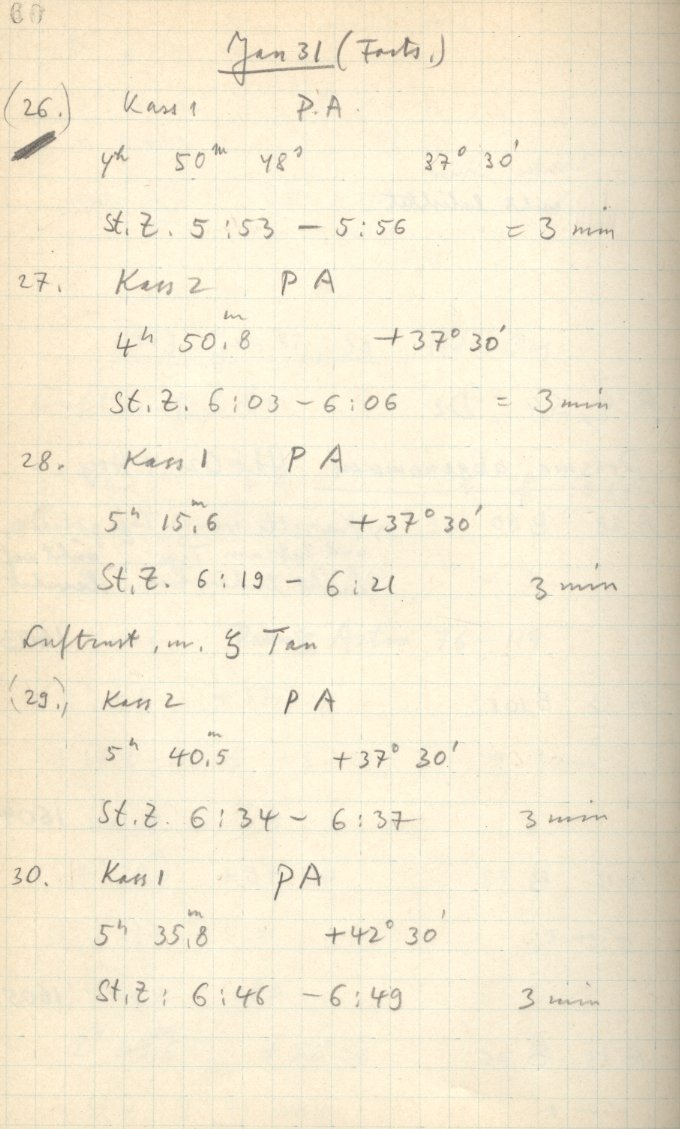 60
Jan 31 (Forts.)
(26.) Kass 1 P.A
4h 50m 48s 37° 30'
St.Z. 5:53 – 5:56 = 3 min
27. Kass 2 P A
4h 50.8m +37° 30'
St.Z. 6:03 – 6:06 = 3 min
28. Kass 1 P A
5h 15.6m +37° 30'
St.Z. 6:19 – 6:21 3 min
m. ζ Tau
(29.) Kass 2 P A
5h 40.5m +37° 30'
St.Z. 6:34 – 6:37 3 min
30. Kass 1 P A
5h 35.8m +42° 30'
St.Z: 6:46 – 6:49 3 min